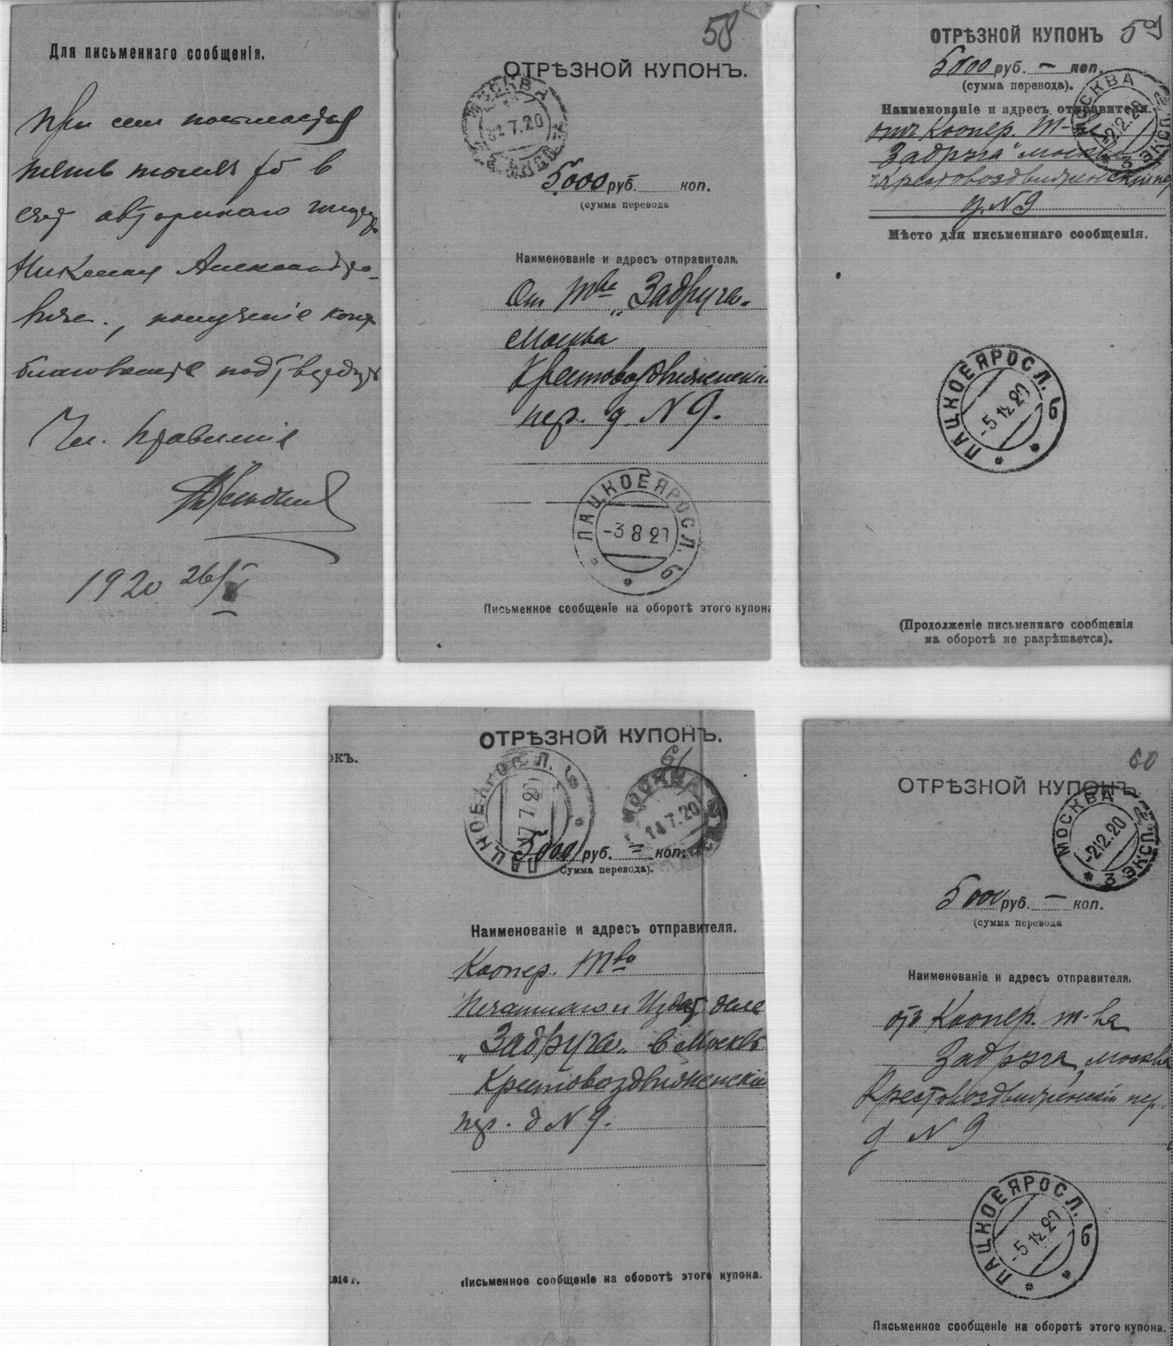 Для письменнаго сообщенія.
При сем
пять тысяч рб в
счет авторскаго
Николая Александро-
вича., полученіе
благоволите
Чл. Правленія
1920 26/
58
ОТРѢЗНОЙ КУПОНЪ.
МОСКВА
7.20
5000 руб. коп.
(сумма перевода
Наименованіе и адресъ отправителя.
От Тва „Задруга„
Москва
Крестовоздвиженскій
пер. д. N 9.
ПАЦКОЕ ЯРОСЛ. б
-3 8 21
Письменное сообщеніе на оборотѣ этого купона
59
ОТРѢЗНОЙ КУПОНЪ
5000 руб. — коп.
(сумма перевода).
МОСКВА 3 ЭКСП.
-212.20
Наименованіе и адресъ отправителя.
отъ Коопер. Т-
Задруга" Москва
Крестовоздвиженскій пер
д. N 9
Мѣсто для письменнаго сообщенія.
ПАЦКОЕ ЯРОСЛ. б
-5 12 20
(Продолженіе письменнаго сообщенія
на оборотѣ не разрѣшается).
окъ.
ОТРѢЗНОЙ КУПОНЪ.
61
ПАЦКОЕ ЯРОСЛ. б
17 7 20
МОСКВА
14.7.20
5000 руб. = коп.
Сумма перевода).
Наименованіе и адресъ отправителя.
Коопер. Тво
Печатнаго и Издат. дела
„Задруга„ в Москвѣ
Крестовоздвиженскій
пер. д N 9.
1916 г.
Письменное сообщеніе на оборотѣ этого купона.
60
ОТРѢЗНОЙ КУПОНЪ.
МОСКВА 3 ЭКСП.
-212.20
5000 руб. — коп.
(сумма перевода
Наименованіе и адресъ отправителя.
отъ Коопер. т-ва
Задруга, Москва
Крестовоздвиженскій пер
д N 9
ПАЦКОЕ ЯРОСЛ. б
-5 12 20
Письменное сообщеніе на оборотѣ этого купона.